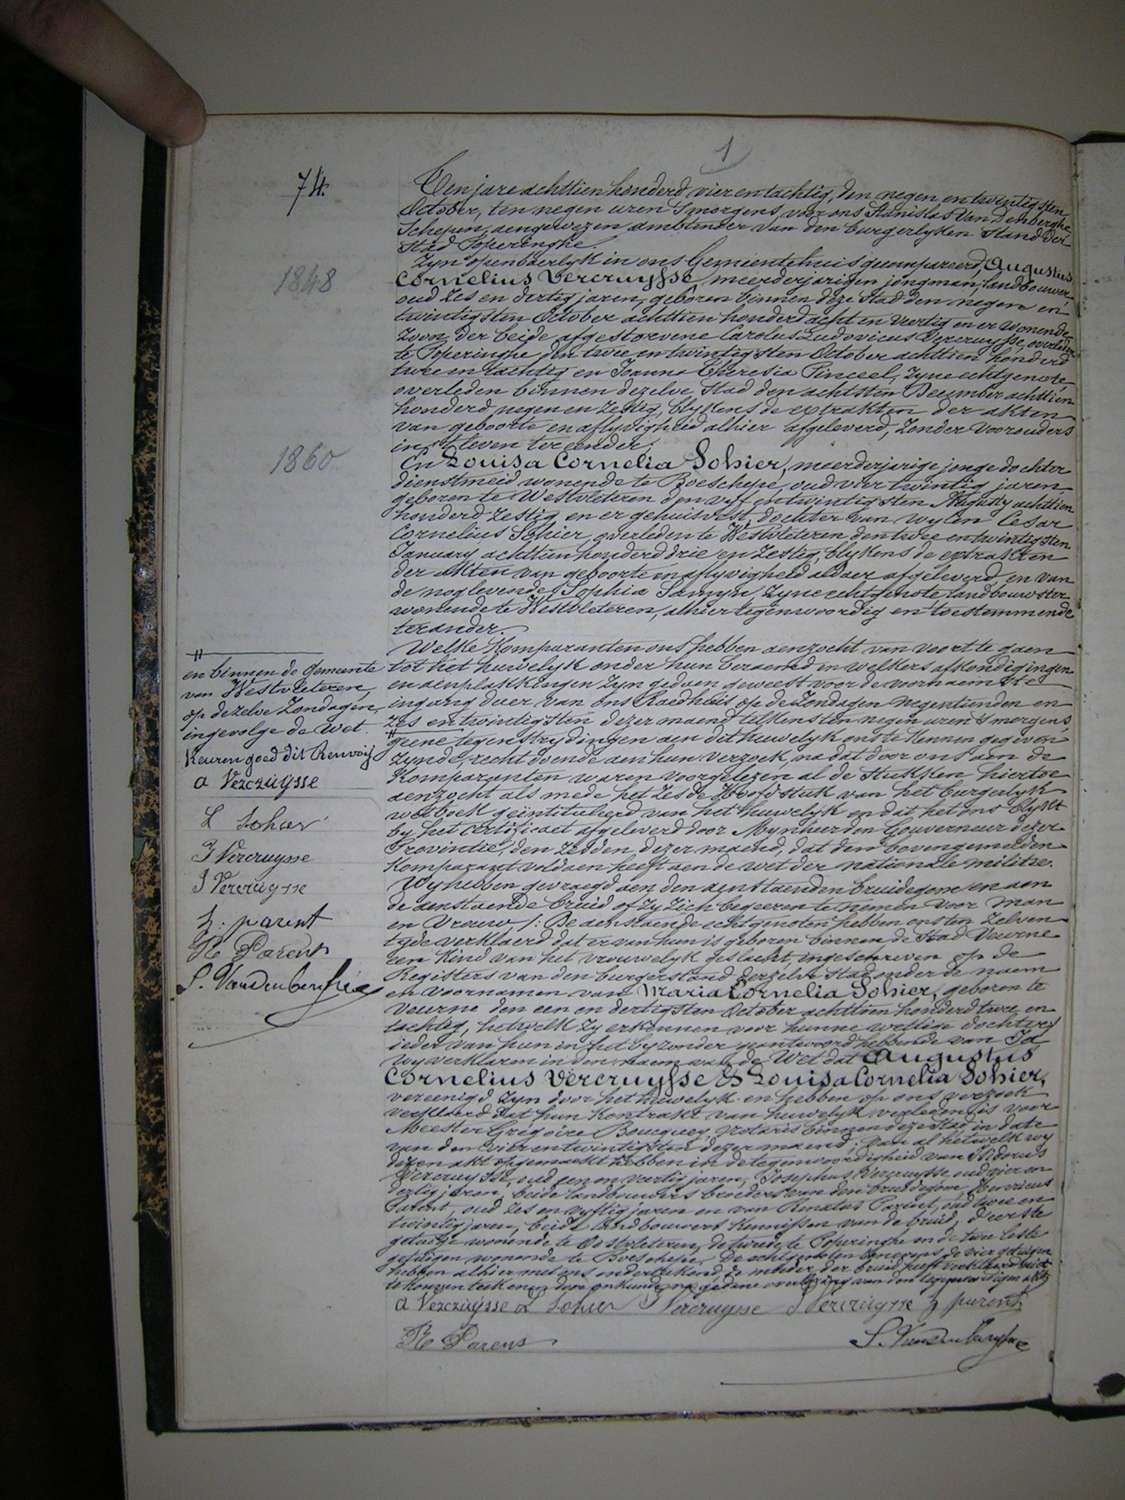 1
74
Ten jare achttien honderd vier en tachtig, den negen en twintigsten
October, ten negen uren 's morgens, voor ons Stanislas Vandenberghe
Schepen, aengewezen ambtenaer van den burgerlyken Stand der
Stad Poperinghe.
Zyn openbaerlyk in ons Gemeentehuis gecompareerd, Augustus
1848
Cornelius Vercruysse, meerderjarigen jongman, landbouwer
oud zes en dertig jaren, geboren binnen deze Stad den negen en
twintigsten October achttien honderd acht en veertig en er wonende
Zoon der beide afgestorvene Carolus Ludovicus Vercruysse, overleden
te Poperinghe den twee en twintigsten October achttien honderd
twee en tachtig en Joanna Theresia Pinceel, zyne echtgenote,
overleden binnen dezelve Stad den achtsten December achttien
honderd negen en zestig, blykens de extrakten der akten
van geboorte en aflyvigheid alhier afgeleverd, zonder voorouders
in 't leven ter eender.
1860
En Louisa Cornelia Sohier, meerderjarige jonge dochter
dienstmeid wonende te Boeschepe, oud vier twintig jaren,
geboren te Westvleteren den vyf en twintigsten Augusty achttien
honderd zestig en er gehuisvest, dochter van wylen Cesar
Cornelius Sohier overleden te Westvleteren den twee en twintigsten
January achttien honderd drie en zestig, blykens de extrakten
der akten van geboorte en aflyvigheid aldaer afgeleverd en van
de nog levende Sophia Samyn, zyne echtgenote, landbouwster
wonende te Westvleteren, alhier tegenwoordig en toestemmende
ter ander.
Welke Komparanten ons hebben aenzocht van voort te gaen
tot het huwelyk onder hun beraemd en welkers afkondigingen
en aenplakkingen zyn gedaen geweest voor de voornaemste
ingang duer van ons Raedhuis op de Zondagen negentienden en
zes en twintigsten dezer maend telkens ten negen uren 's morgens
geene tegenstrydingen aen dit huwelyk ons te kennen gegeven
zynde, recht doende aen hun verzoek, na dat door ons aen de
Komparanten waren voorgelezen al de Stukken hiertoe
aenzocht als mede het zesde Hoofdstuk van het burgerlyk
wetboek geïntituleerd van het huwelyk en dat het ons blykt
by het Certificaet afgeleverd door Mynheer den Gouverneur dezer
Provincie, den zevden dezer maend, dat den bovengemelden
Komparant voldaen heeft aende wet der nationale militie.
Wy hebben gevraegd aen den aenstaenden bruidegom en aen
de aenstaende bruid of zy zich begeeren te nemen voor man
en Vrouw /: De aenstaende echtgenoten hebben ons ten zelven
tyde verklaerd dat er van hun is geboren binnen de Stad Veurne
een kind van het vrouwelyk geslacht, ingeschreven op de
Registers van den burgerstand derzelve Stad onder de naem
en voornamen van Maria Cornelia Sohier, geboren te
Veurne den een en dertigsten October achttien honderd twee en
tachtig, hetwelk zy erkennen voor hunne wettige dochter,
ieder van hun en het byzonder geantwoord hebbende van Ja
wy verklaren in den naem van de Wet dat Augustus
Cornelius Vercruysse & Louisa Cornelia Sohier,
vereenigd zyn door het huwelyk en hebben op ons verzoek
verklaerd dat hun Kontrakt van huwelyk verleden is voor
Meester Grégoire Boucquey, notaris binnen deze stad in date
van den vier en twintigsten dezer maend. Van al hetwelk wy
dezen akt opgemaekt hebben in de tegenwoordigheid van Isidorus
Vercruysse, oud een en veertig jaren, Josephus Vercruysse, oud vier en
dertig jaren, beide landbouwers broeders van den bruidegom, Henricus
Parent, oud zes en vyftig jaren en van Renatus Parent, oud twee en
twintig jaren, beide landbouwers Kennissen van de bruid, d'eerste
getuige wonende te Oostvleteren, de tweede te Poperinghe en de twee leste
getuigen wonende te Boeschepe. De echtgenoten benevens de vier getuigen
hebben alhier met ons onderteekend de moeder der bruid heeft verklaerd niet
te kunnen teekenen door onkunde, na gedane voorlezing van den tegenwoordigen akt.
A Vercruysse L Sohier I Vercruysse J Vercruysse H parent
R Parent
S. Vandenberghe
"
en binnen de Gemeente
van Westvleteren,
op dezelve Zondagen,
ingevolge de Wet.
Keuren goed dit Renvooij
A Vercruysse
L Sohier
I Vercruysse
J Vercruysse
H. parent
R Parent
S. Vandenberghe